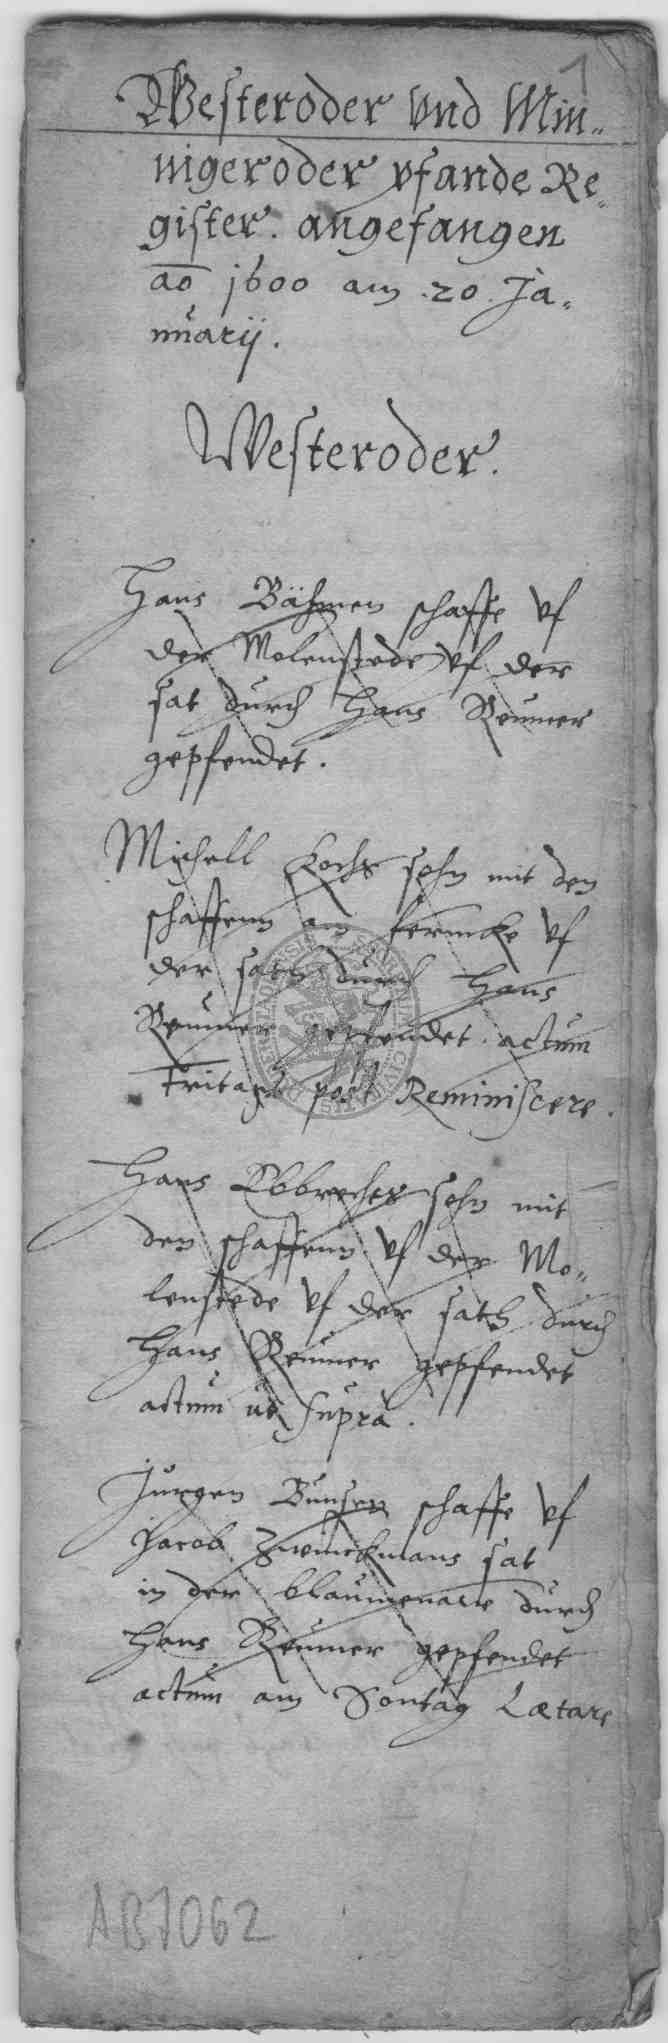 1
Westeroder vnd Min„
nigeroder pfande Re„
gister. angefangen
ao 1600 am .20. Ja„
nuarij.
Westeroder.
Hans Bähmen schaffe vf
der Molenstede vf der
sat durch Hans Reumer
gepfendet.
Michell Kochs sohn mit den
schaffenn am vf
der sath durch Hans
Reumer gepfendet. actum
post Reminiscere.
Hans Ebbrechts sohn mit
den schaffenn vf der Mo„
lenstede vf der sath durch
Hans Reumer gepfendet
actum ut supra.
Jurgen Bunsen schaffe vf
Jacob Zwinckmans sat
in der durch
Hans Reumer gepfendet
actum am Sontag Lætare
AB7062